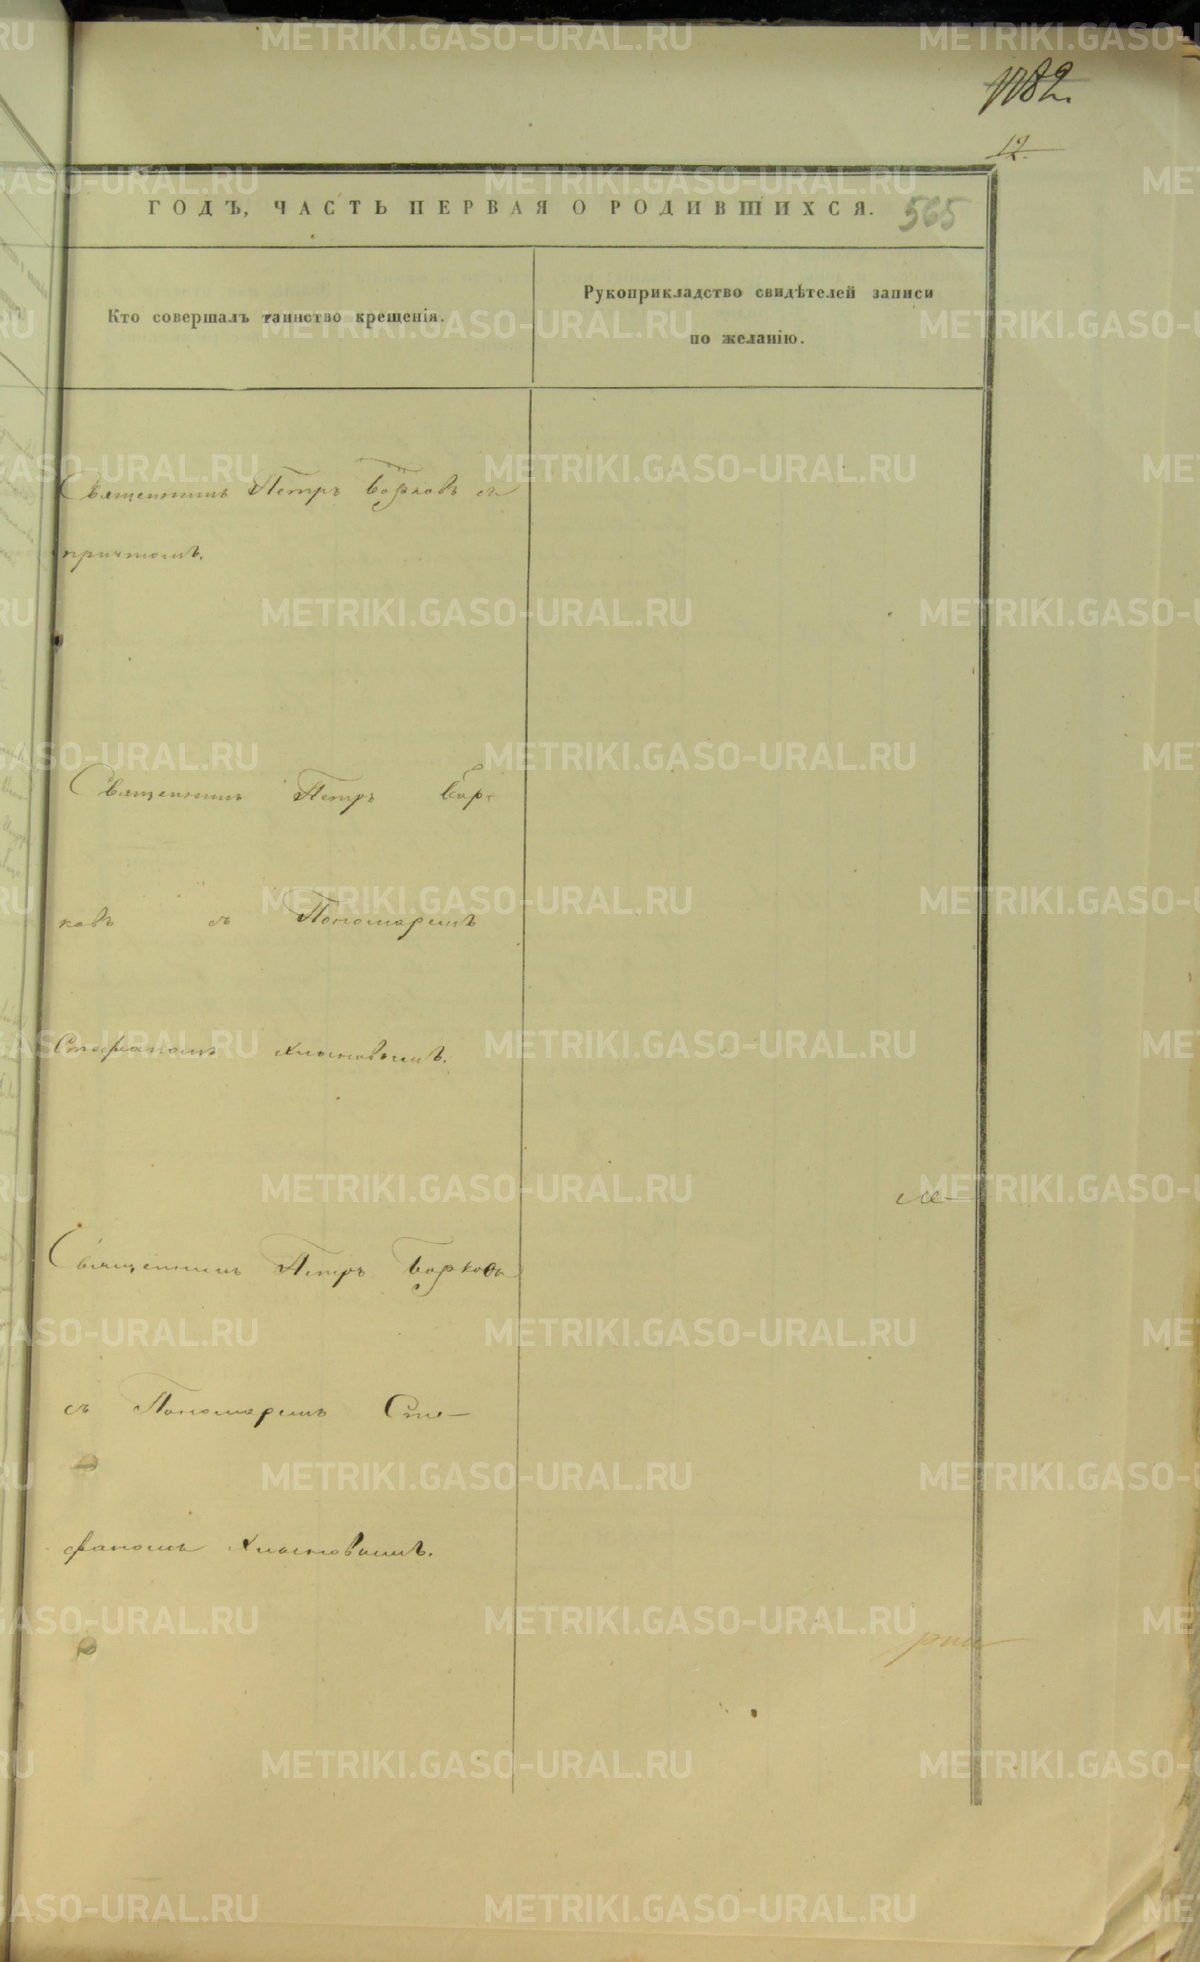 1182.
12.
ГОДЪ, ЧАСТЬ ПЕРВАЯ О РОДИВШИХСЯ. 565
Кто совершалъ таинство крещенія.
Рукоприкладство свидѣтелей записи
по желанію.
Священникъ Петръ Борковъ съ
причтомъ.
Священникъ Петръ Бор-
ковъ съ Пономаремъ
Стефаномъ Хлыновымъ.
Священникъ Петръ Борковъ
съ Пономаремъ Сте-
фаномъ Хлыновымъ.
METRIKI.GASO-URAL.RU